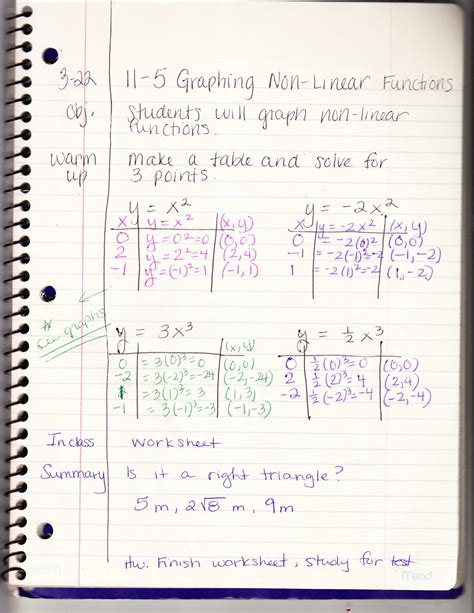 3-22 11-5 Graphing Non-Linear Functions
Obj. Students will graph non-linear
functions.
warm up make a table and solve for
3 points.
y = x² y = -2x²
x y = x² (x, y) x y = -2x² (x, y)
0 y = 0² = 0 (0,0) 0 = -2(0)² (0,0)
2 y = 2² = 4 (2,4) -1 = -2(-1)² = -2 (-1,-2)
-1 y = (-1)² = 1 (-1,1) 1 = -2(1)² = -2 (1,-2)
* See graphs
y = 3x³ y = ½x³
(x, y)
0 = 3(0)³ = 0 (0,0) 0 ½(0)³ = 0 (0,0)
-2 = 3(-2)³ = -24 (-2,-24) 2 ½(2)³ = 4 (2,4)
1 = 3(1)³ = 3 (1,3) -2 ½(-2)³ = -4 (-2,-4)
-1 = 3(-1)³ = -3 (-1,-3)
In class worksheet
Summary Is it a right triangle?
5m, 2√8 m, 9m
Hw. Finish worksheet, study for test
Mead